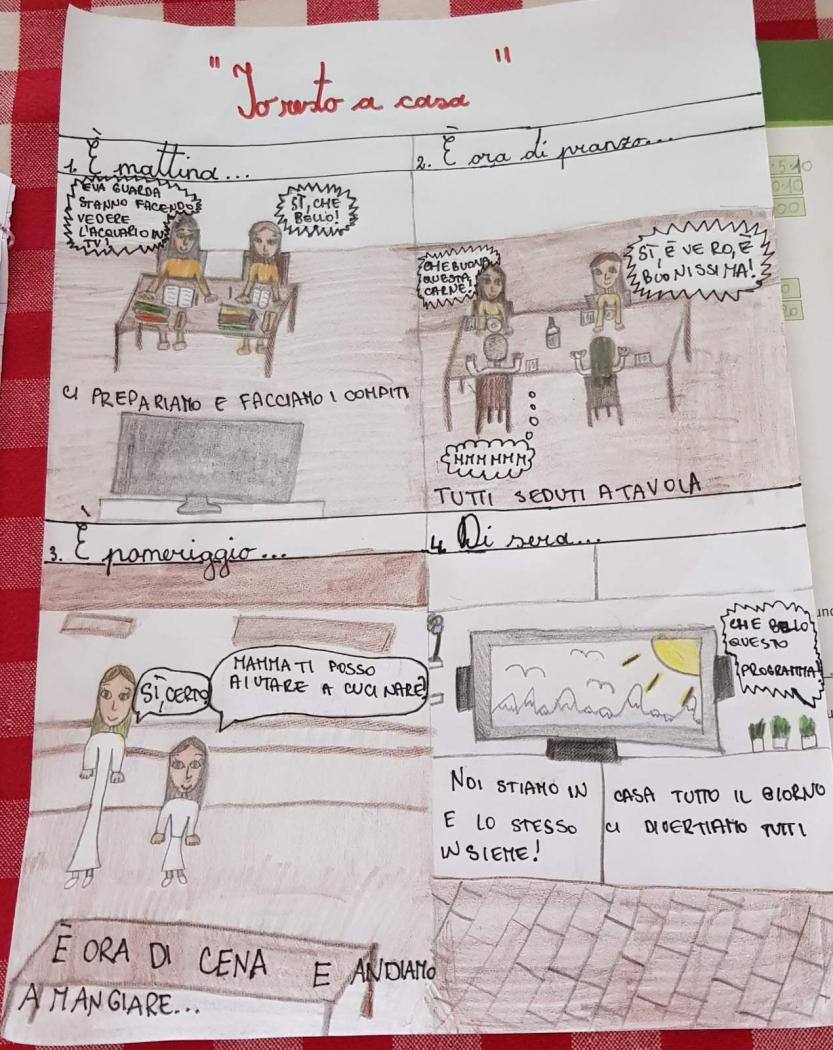 "Io resto a casa"
1. È mattina...
EVA GUARDA
STANNO FACENDO
VEDERE
L'ACQUARIO IN
TV!
SÌ, CHE
BELLO!
CI PREPARIAMO E FACCIAMO I COMPITI
2. È ora di pranzo...
CHE BUONA
QUESTA
CARNE!
SÌ, È VERO, È
BUONISSIMA!
MMMMMM
TUTTI SEDUTI A TAVOLA
3. È pomeriggio...
SÌ, CERTO
MAMMA TI POSSO
AIUTARE A CUCINARE?
È ORA DI CENA E ANDIAMO
A MANGIARE...
4. Di sera...
CHE BELLO
QUESTO
PROGRAMMA!
NOI STIAMO IN CASA TUTTO IL GIORNO
E LO STESSO CI DIVERTIAMO TUTTI
INSIEME!